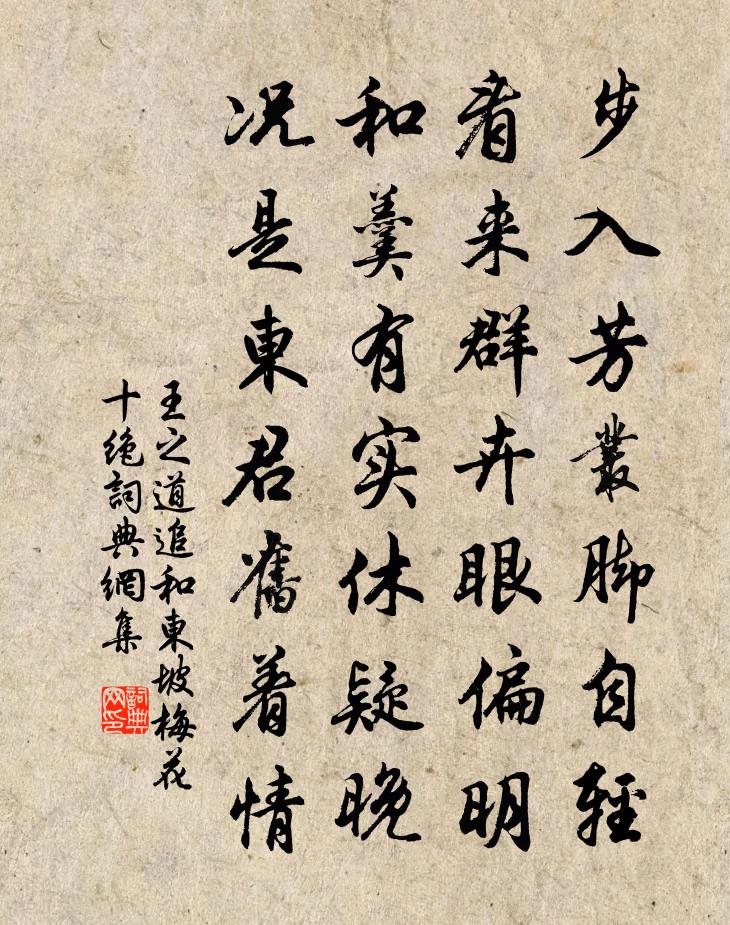 步入芳叢脚自輕
看来群卉眼偏明
和羹有实休疑晚
况是東君舊着情
王之道追和東坡梅花
十绝詞典網集
詞典
网印